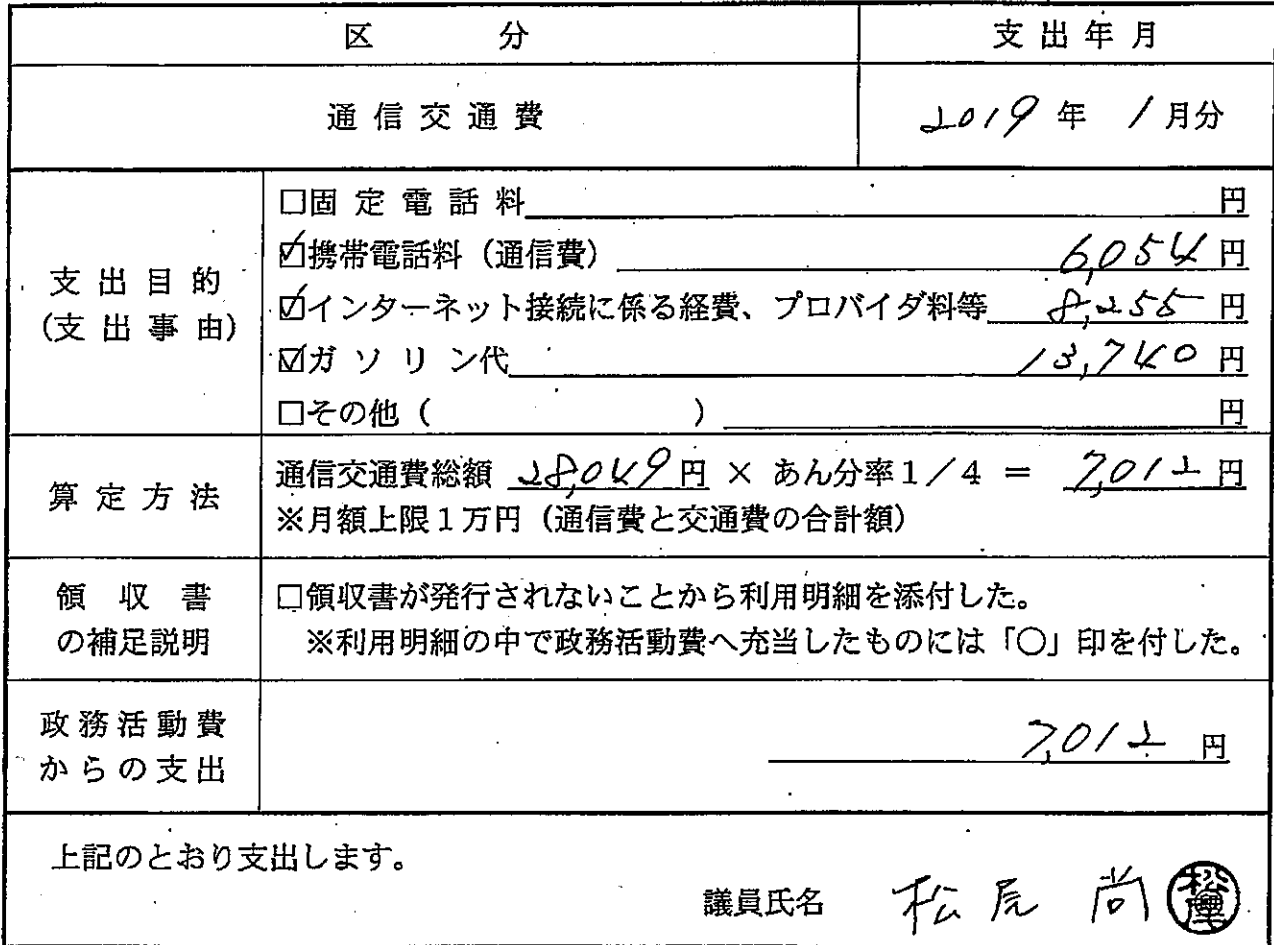 区分 支出年月
通信交通費 2019年 1月分
支出目的
(支出事由)
□固定電話料 円
☑携帯電話料（通信費） 6,054円
☑インターネット接続に係る経費、プロバイダ料等 8,255円
☑ガソリン代 13,740円
□その他（ ） 円
算定方法
通信交通費総額 28,049円 × あん分率1／4 = 7,012円
※月額上限1万円（通信費と交通費の合計額）
領収書
の補足説明
□領収書が発行されないことから利用明細を添付した。
※利用明細の中で政務活動費へ充当したものには「○」印を付した。
政務活動費
からの支出
7,012 円
上記のとおり支出します。
議員氏名